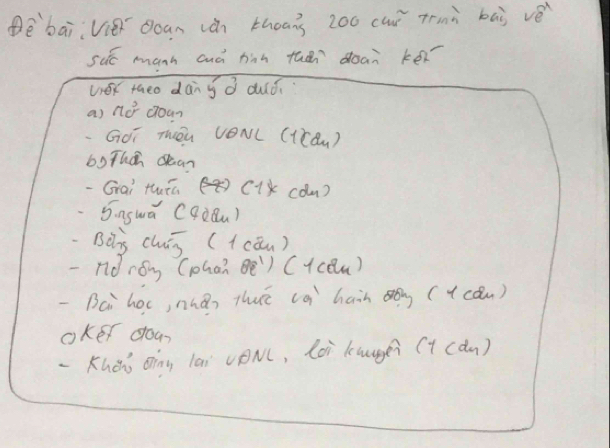 Đề bài: Viết đoạn văn khoảng 200 chữ trình bày về
sức mạnh của tinh thần đoàn kết
Viết theo dàn ý ở dưới:
a) Mở đoạn
- Giới thiệu VĐNL (1 câu)
b) Thân đoạn
- Giải thích (1 câu)
- Ý nghĩa (4 câu)
- Bằng chứng (1 câu)
- Mở rộng (phản đề) (1 câu)
- Bài học, nhận thức và hành động (1 câu)
c) Kết đoạn
- Khẳng định lại VĐNL, lời khuyên (1 câu)